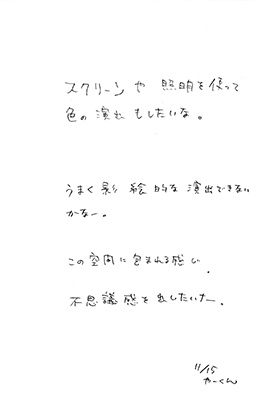 スクリーンや 照明を使って
色の演出もしたいな。
うまく影絵的な演出できない
かなー。
この空間に包まれる感じ.
不思議感を出したいなー。
11/15
やーくん